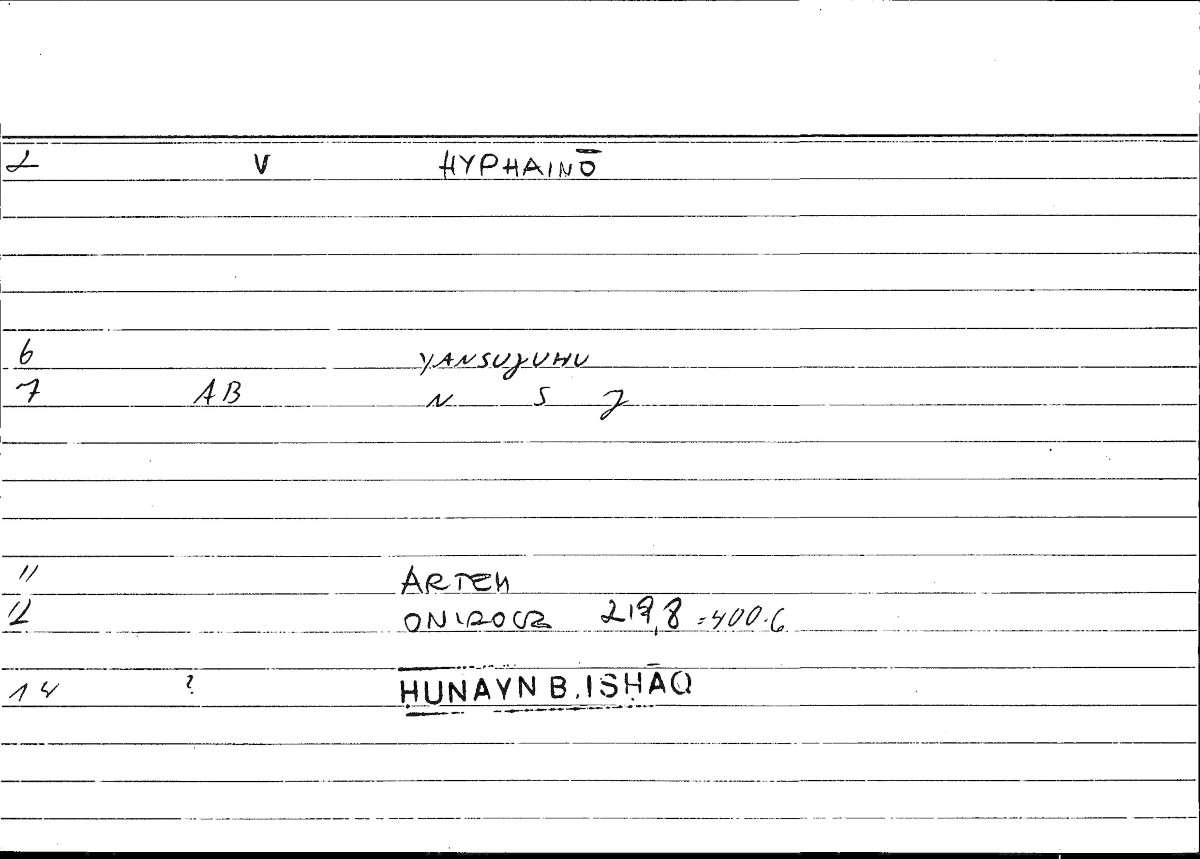 2 V HYPHAINŌ
6 YANSUJUHU
7 AB N S J
11 ARTEM
12 ONIROCR 219,8 = 400.6
14 ? ḤUNAYN B. ISḤĀQ